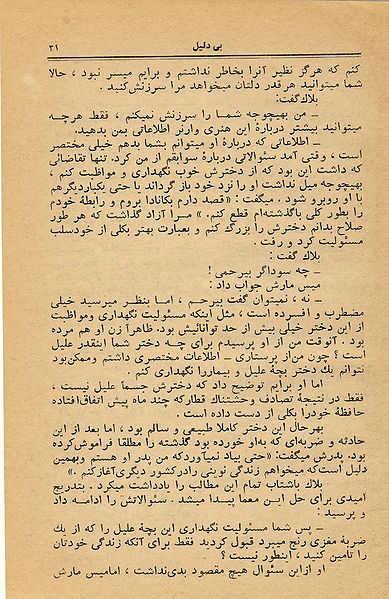 بی دلیل
۲۱
کنم که هرگز نظیر آنرا بخاطر نداشتم و برایم میسر نبود ، حالا
شما میتوانید هر قدر دلتان میخواهد مرا سرزنش کنید .
بلاک گفت:
ـ من بهیچوجه شما را سرزنش نمیکنم ، فقط هرچه
میتوانید بیشتر دربارهٔ این هنری وارنر اطلاعاتی بمن بدهید.
ـ اطلاعاتی که دربارهٔ او میتوانم بشما بدهم خیلی مختصر
است ، وقتی آمد سئوالاتی دربارهٔ سوابقم از من کرد. تنها تقاضائی
که داشت این بود که از دخترش خوب نگهداری و مواظبت کنم ،
بهیچوجه میل نداشت او را نزد خود باز گرداند یا حتی یکباردیگرهم
با او روبرو شود . میگفت : «قصد دارم بکانادا بروم و رابطهٔ خودم
را بطور کلی باگذشته‌ام قطع کنم. » مرا آزاد گذاشت که هر طور
صلاح بدانم دخترش را بزرگ کنم و بعبارت بهتر بکلی از خودسلب
مسئولیت کرد و رفت .
بلاک گفت :
ـ چه سوداگر بیرحمی !
میس مارش جواب داد :
ـ نه ، نمیتوان گفت بیرحم ، اما بنظر میرسید خیلی
مضطرب و افسرده است ، مثل اینکه مسئولیت نگهداری ومواظبت
از این دختر خیلی بیش از حد توانائیش بود. ظاهراً زن او هم مرده
بود . آنوقت من از او پرسیدم برای چه دختر شما اینقدر علیل
است ؟ چون من‌از پرستاری ـ اطلاعات مختصری داشتم وممکن‌بود
نتوانم یك دختر بچهٔ علیل و بیماررا نگهداری کنم .
اما او برایم توضیح داد که دخترش جسماً علیل نیست ،
فقط در نتیجهٔ تصادف وحشتناك قطارکه چند ماه پیش اتفاق‌افتاده
حافظهٔ خودرا بکلی از دست داده است .
بهرحال این دختر کاملا طبیعی و سالم بود ، اما بعد از این
حادثه و ضربه‌ای که به‌او خورده بود گذشته را مطلقا فراموش‌کرده
بود. پدرش میگفت: «حتی بیاد نمیآوردکه من پدر او هستم وبهمین
دلیل است‌که میخواهم زندگی نوینی رادرکشور دیگری‌آغازکنم .»
بلاك باشتاب تمام این مطالب را یادداشت میکرد . بتدریج
امیدی برای حل این معما پیدا میشد . سئوالاتش را ادامه داد
و پرسید :
ـ پس شما مسئولیت نگهداری این بچهٔ علیل را که از یك
ضربهٔ مغزی رنج میبرد قبول کردید فقط برای آنکه زندگی خودتان
را تامین کنید ، اینطور نیست ؟
او ازاین سئوال هیچ مقصود بدی‌نداشت ، امامیس مارش